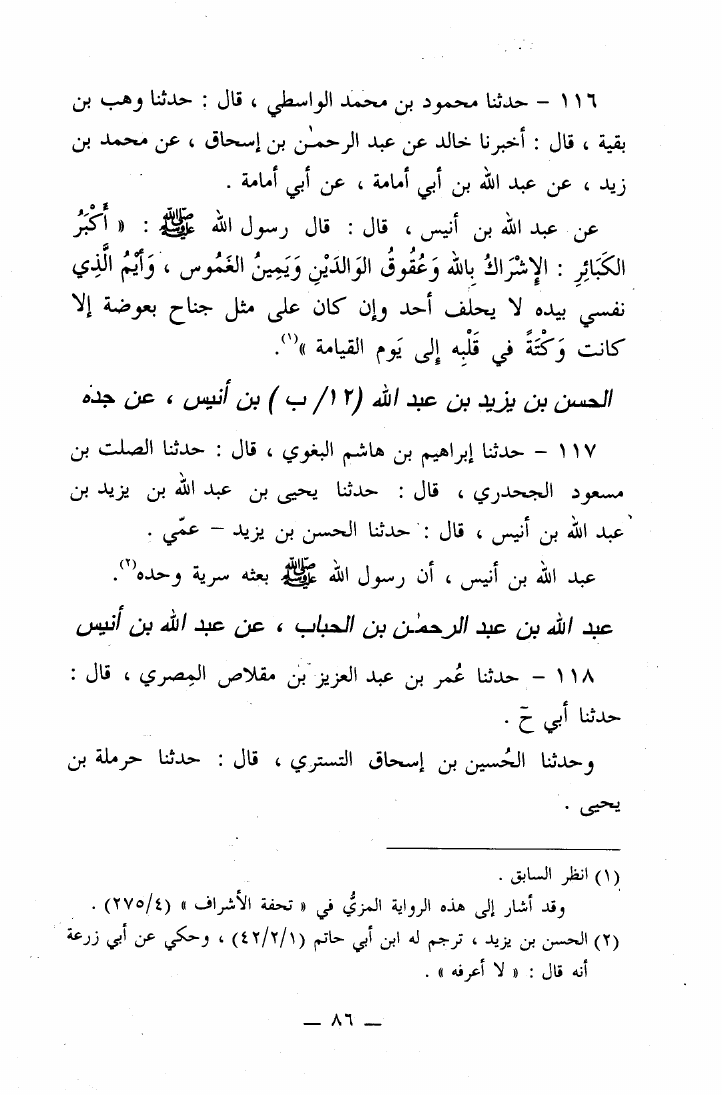 ١١٦ - حدثنا محمود بن محمد الواسطي ، قال : حدثنا وهب بن
بقية ، قال : أخبرنا خالد عن عبد الرحمٰن بن إسحاق ، عن محمد بن
زيد ، عن عبد الله بن أبي أمامة ، عن أبي أمامة .
عن عبد الله بن أنيس ، قال : قال رسول الله ﷺ : « أَكْبَرُ
الكَبَائِرِ : الإِشْرَاكُ بِاللهِ وَعُقُوقُ الوَالَدَيْنِ وَيَمِينُ الغَمُوس ، وَأَيْمُ الَّذِي
نفسي بيده لا يحلف أحد وإن كان على مثل جناح بعوضة إلا
كانت وَكْتَةً في قَلْبِه إلى يَوم القيامة »(١).
الحسن بن يزيد بن عبد الله (١٢/ ب) بن أنيس ، عن جده
١١٧ - حدثنا إبراهيم بن هاشم البغوي ، قال : حدثنا الصلت بن
مسعود الجحدري ، قال : حدثنا يحيى بن عبد الله بن يزيد بن
عبد الله بن أنيس ، قال : حدثنا الحسن بن يزيد - عمّي .
عبد الله بن أنيس ، أن رسول الله ﷺ بعثه سرية وحده(٢).
عبد الله بن عبد الرحمٰن بن الحباب ، عن عبد الله بن أنيس
١١٨ - حدثنا عُمر بن عبد العزيز بن مقلاص المِصري ، قال :
حدثنا أبي حَ .
وحدثنا الحُسين بن إسحاق التستري ، قال : حدثنا حرملة بن
يحيى .
(١) انظر السابق .
وقد أشار إلى هذه الرواية المزيُّ في « تحفة الأشراف » (٢٧٥/٤) .
(٢) الحسن بن يزيد ، ترجم له ابن أبي حاتم (٤٢/٢/١) ، وحكي عن أبي زرعة
أنه قال : « لا أعرفه » .
— ٨٦ —